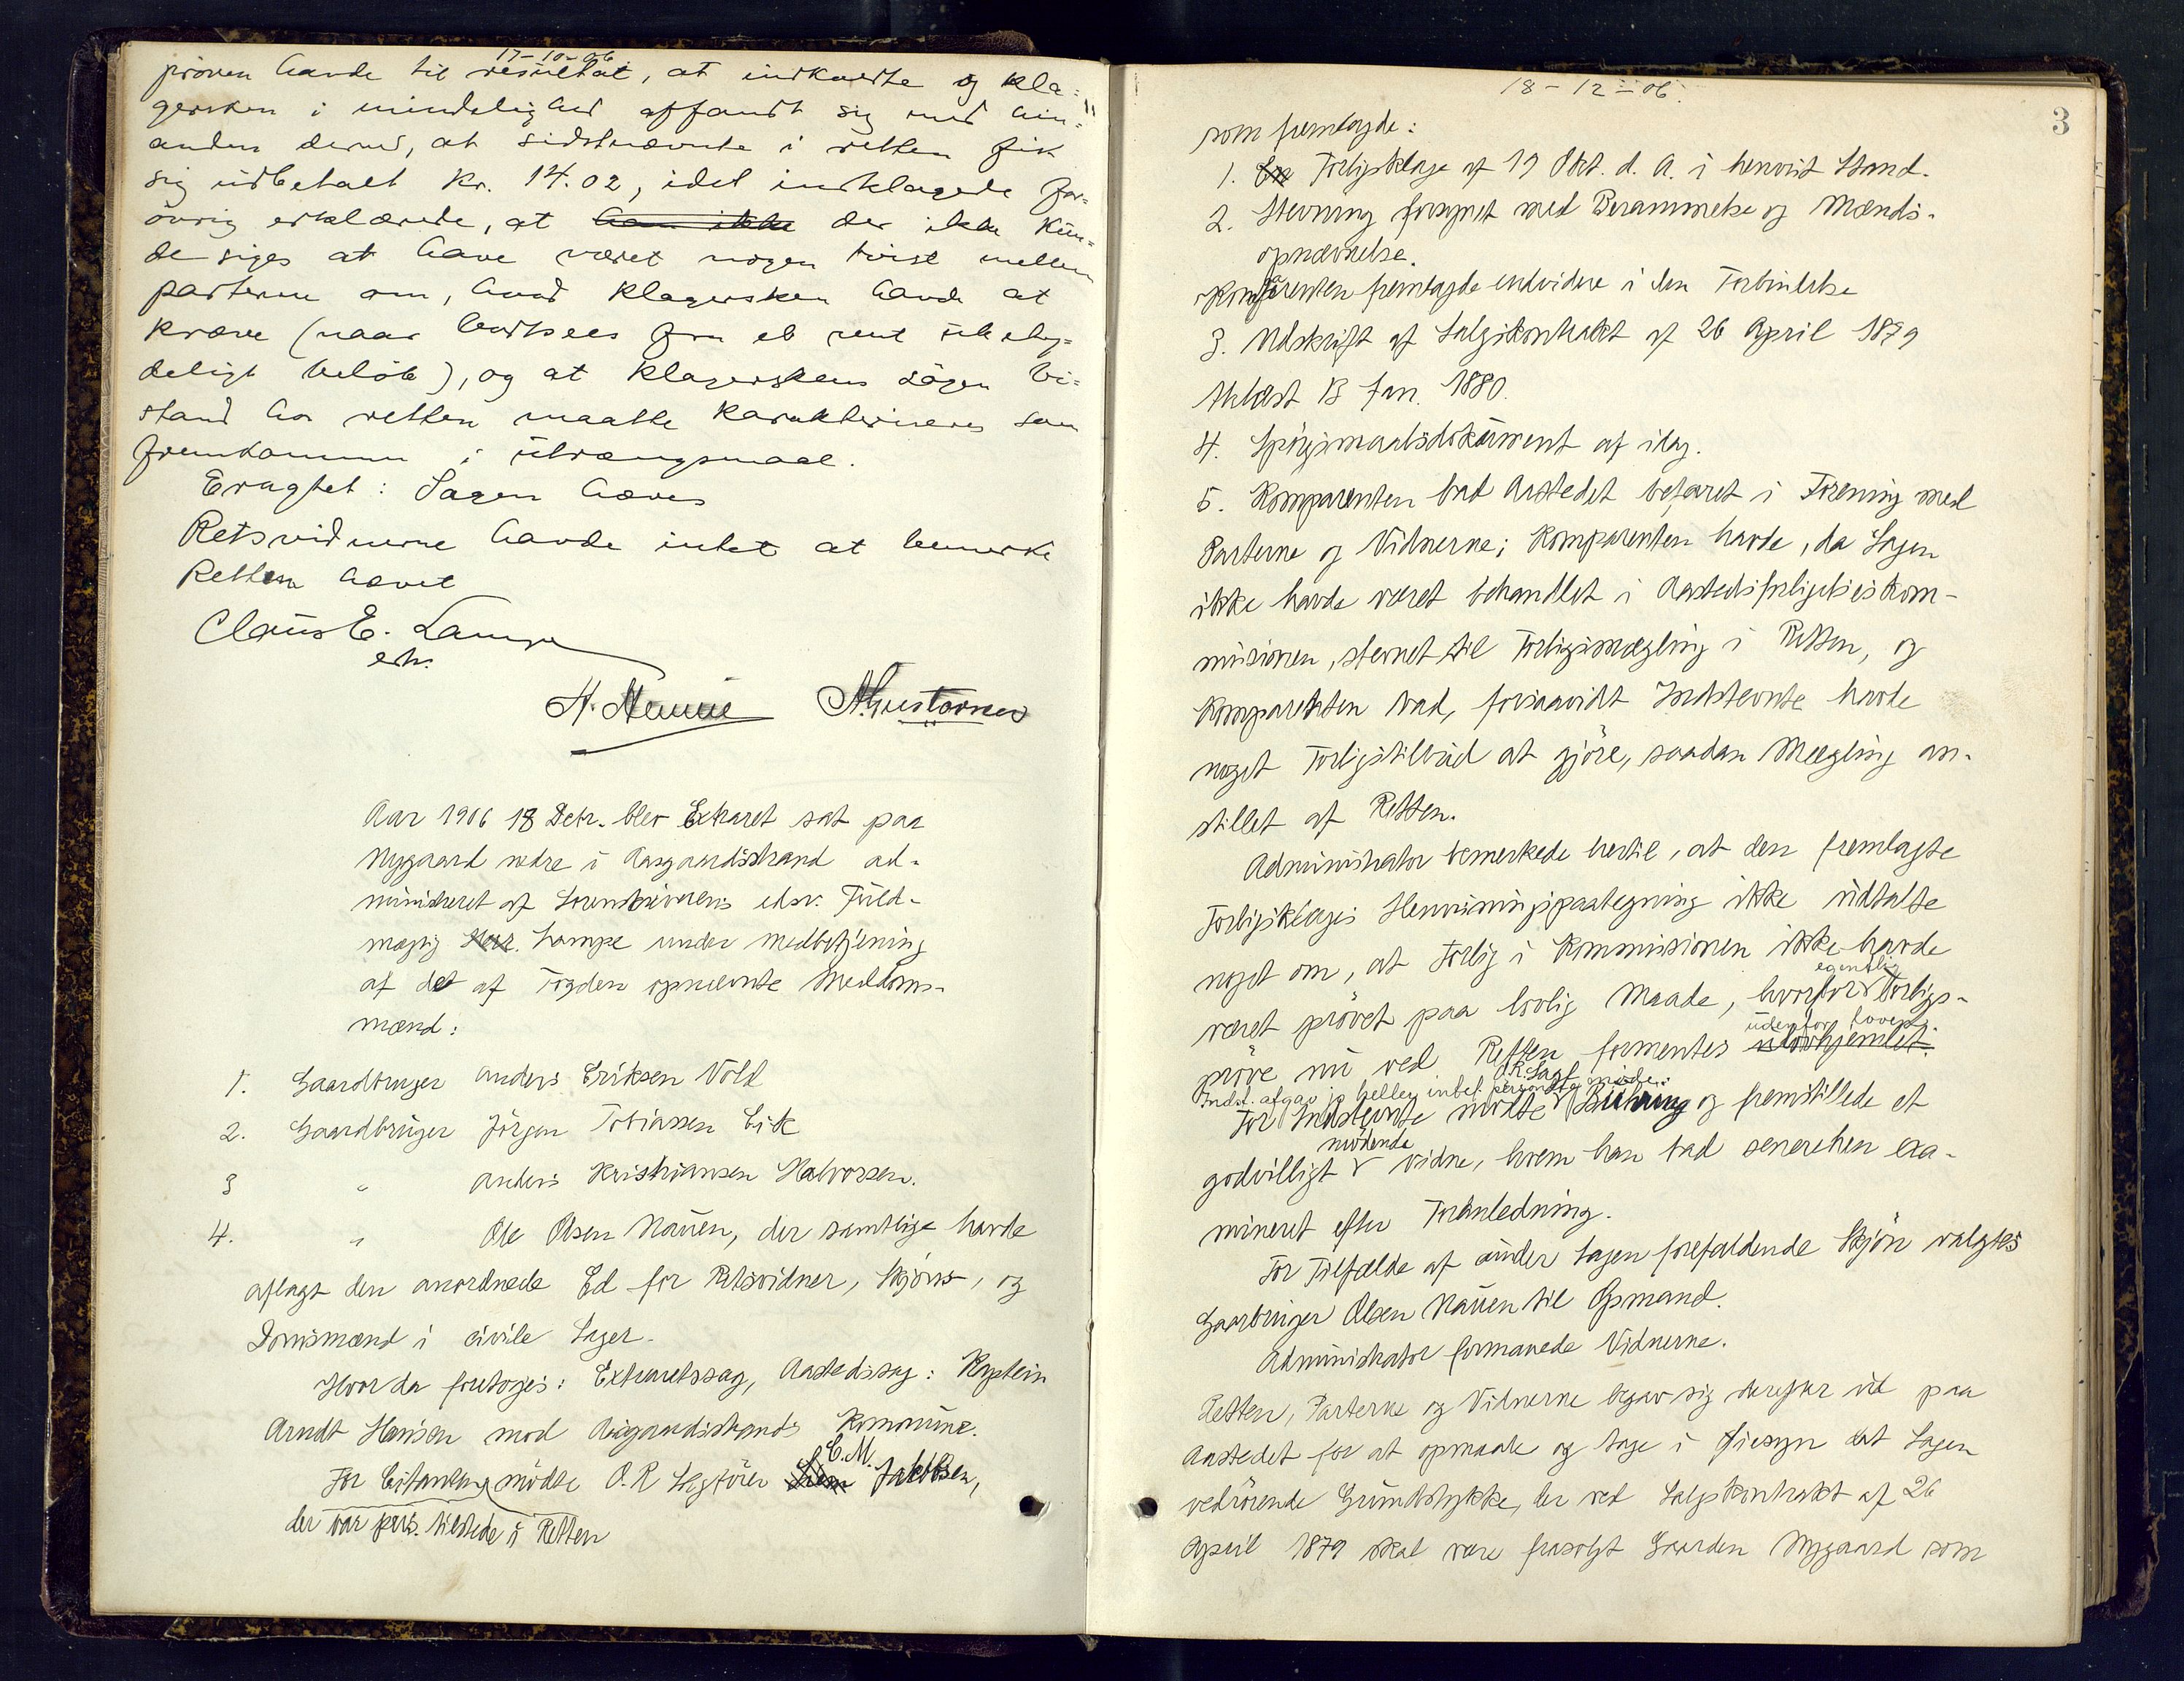 17-10-06.
prøven havde til resultat, at indkaldte og kla-
gersken i mindelighed affandt sig med hin-
anden derved, at sidstnævnte i retten fik
sig udbetalt kr. 14.02, idet indklagede for-
øvrig erklærede, at han ikke der ikke kun-
de siges at have været nogen tvist mellem
parterne om, hvad klagersken havde at
kræve (naar bortsees fra et rent ubety-
deligt beløb), og at klagerskens søgen bi-
stand hos retten maatte karakteriseres som
fremkommen i utrængsmaal.
Eragtet: Sagen hæves
Retsvidnerne havde intet at bemerke
Retten hævet
Claus E. Lampe
eh.
Aar 1906 18 Decbr. blev Extraret sat paa
Nygaard nedre i Aasgaardsstrand ad-
ministreret af Sorenskriverens edsv. Fuld-
mægtig Herr. Lampe under medbetjening
af det af Fogden opnævnte Meddoms-
mænd:
1. Gaardbruger Anders Eriksen Vold
2. Gaardbruger Jörgen Tobiassen Eik
3 " Anders Kristiansen Halvorsen.
4. " Ole Olsen Nauen, der samtlige havde
aflagt den anordnede Ed for Retsvidner, Skjöns-, og
Domsmænd i civile Sager.
Hvor da foretoges: Extraretssag, Aastedssag: Kaptein
Arndt Hansen mod Aasgaardsstrands Kommune.
For Citanten mödte O.R Sagförer C.M. Jakobsen,
der var pers. tilstede i Retten
18-12-06.
3
som fremlagde:
1. Forligsklage af 19 Okt. d. A. i henvist Stand.
2. Stevning forsynet med Berammelse og Mænds-
opnævnelse.
Komparenten fremlagde endvidere i den Forbindelse
3. Udskrift af Salgskontrakt af 26 April 1879
thlæst 13 Jan. 1880.
4. Spörgsmaalsdokument af idag.
5. Komparenten bad Aastedet befaret i Forening med
Parterne og Vidnerne; Komparenten havde, da Sagen
ikke havde været behandlet i Aastedsforligelseskom-
missionen, stevnet til Forligsmægling i Retten, og
Komparenten bad, forsaavidt Indstevnte havde
noget Forligstilbud at gjöre, saadan Mægling an-
stillet af Retten.
Administrator bemerkede hertil, at den fremlagte
Forligsklages Henvisningspaategning ikke udtalte
noget om, at Forlig i Kommissionen ikke havde
været prövet paa lovlig Maade, hvorfor egentlig Forligs-
pröve nu ved Retten formentes udenfor loven. ulovhjemlet.
Indst. afgav jo heller intet personlig möde.
For Indstevnte mödte O.R.Sagf. Bühring og fremstillede et
godvilligt mödende Vidne, hvem han bad senerehen exa-
mineret efter Foranledning.
For Tilfælde af under Sagen forefaldende Skjön valgtes
Gaarbruger Olsen Nauen til Opmand.
Administrator formanede Vidnerne.
Retten, Parterne og Vidnerne begav sig derefter ud paa
Aastedet for at opmaale og tage i Öiesyn det Sagen
vedrörende Grundstykke, der ved Salgskontrakt af 26
April 1879 skal være frasolgt Gaarden Nygaard som